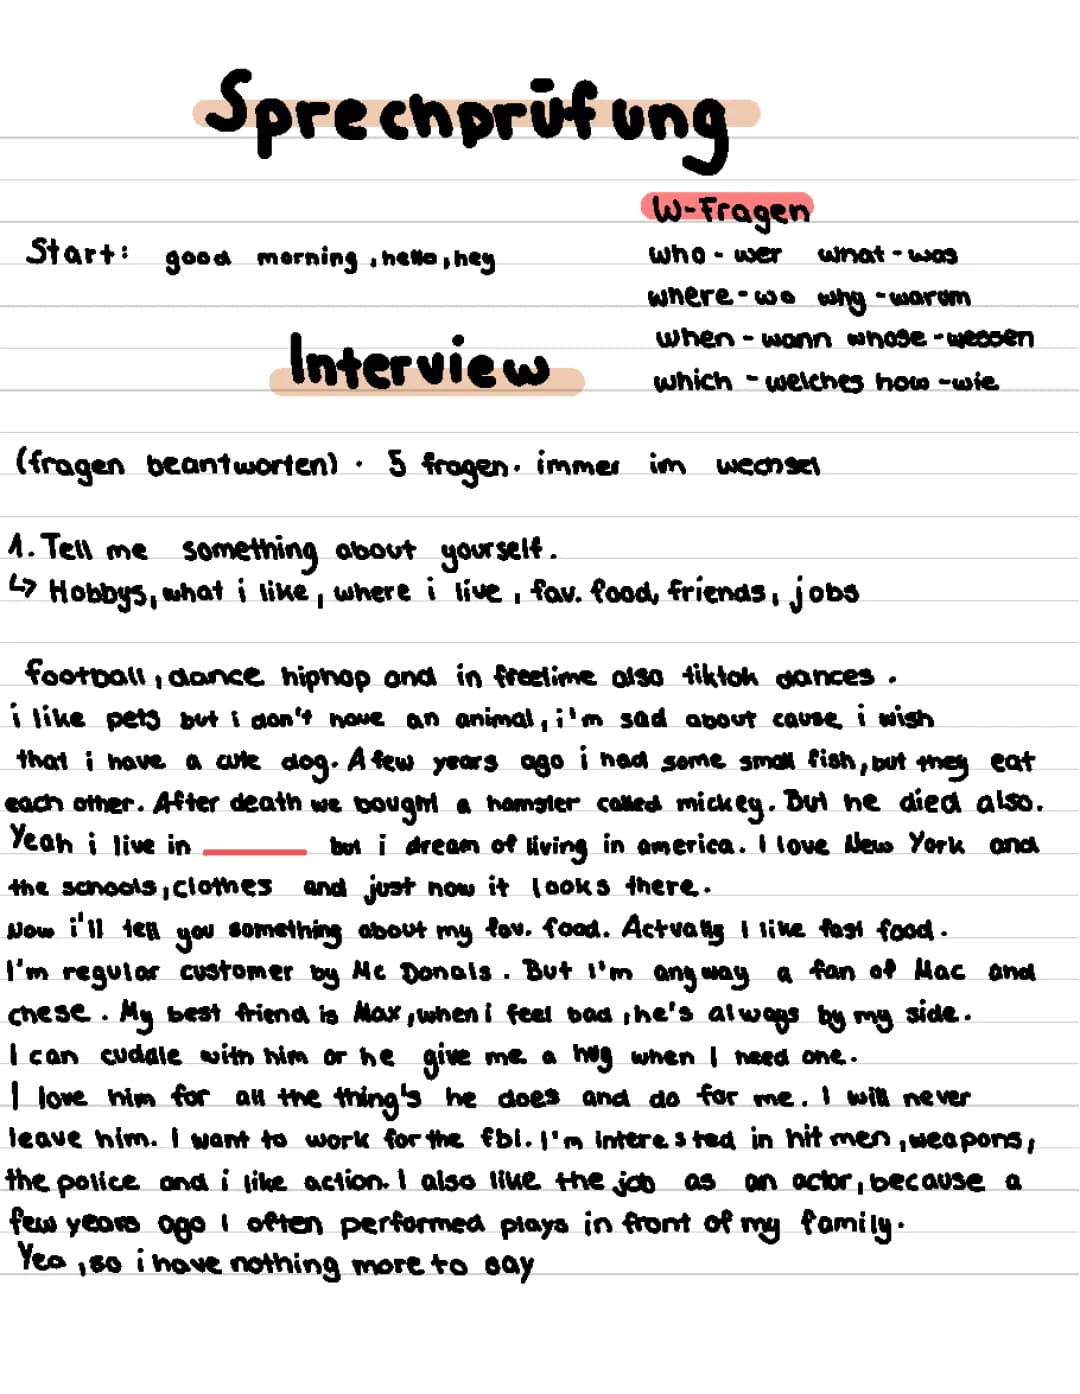 Sprechprüfung
W-Fragen
Start: good morning, hello, hey
who - wer what - was
where - wo why - warum
when - wann whose - wessen
which - welches how - wie
Interview
(fragen beantworten) · 5 fragen. immer im wechsel
1. Tell me something about yourself.
↳ Hobbys, what i like, where i live, fav. food, friends, jobs
football, dance hiphop and in freetime also tiktok dances.
i like pets but i don't have an animal, i'm sad about cause i wish
that i have a cute dog. A few years ago i had some small fish, but they eat
each other. After death we bought a hamster called mickey. But he died also.
Yeah i live in ______ but i dream of living in america. I love New York and
the schools, clothes and just how it looks there.
Now i'll tell you something about my fav. food. Actually I like fast food.
I'm regular customer by Mc Donals. But I'm anyway a fan of Mac and
chese. My best friend is Max, when i feel bad, he's always by my side.
I can cuddle with him or he give me a hug when I need one.
I love him for all the thing's he does and do for me. I will never
leave him. I want to work for the fbi. I'm interested in hit men, weapons,
the police and i like action. I also like the job as an actor, because a
few years ago I often performed plays in front of my family.
Yea, so i have nothing more to say